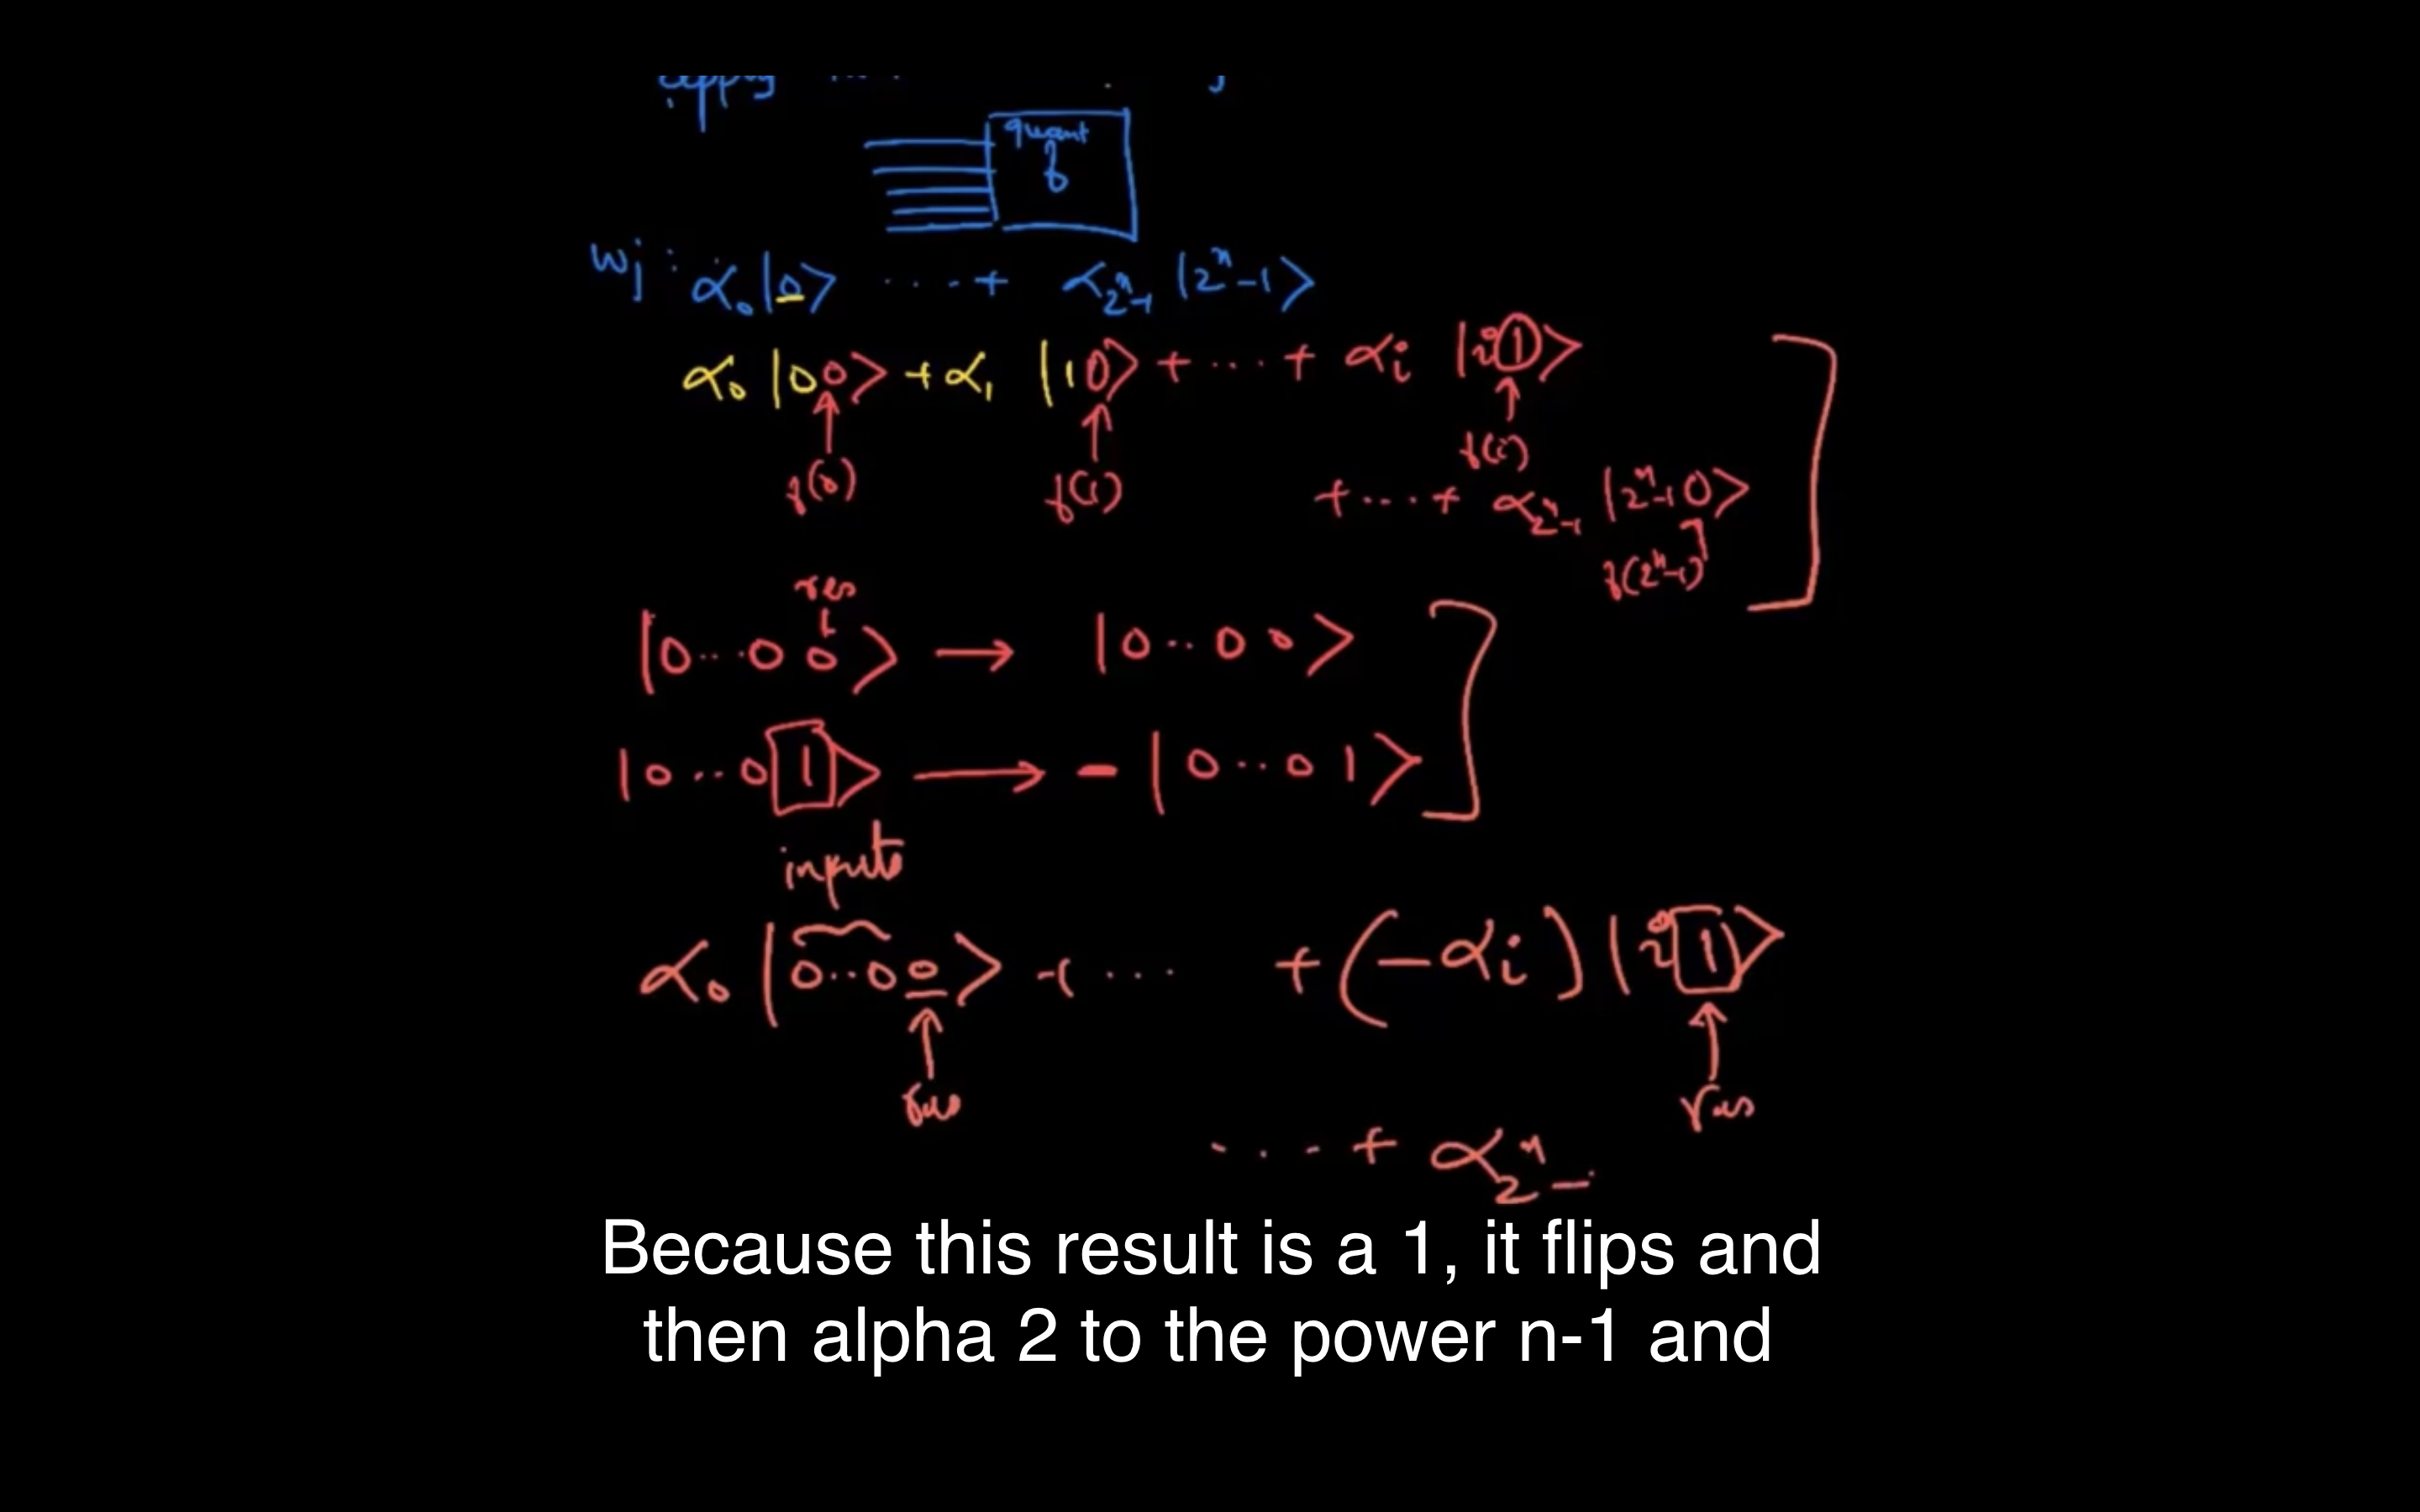 quant
f
wj : α₀|0⟩ ....+ α_{2ⁿ-1} |2ⁿ-1⟩
α₀ |00⟩ + α₁ |10⟩ + ... + αᵢ |i1⟩
f(0) f(1) f(i)
+ ... + α_{2ⁿ-1} |2ⁿ-1 0⟩
f(2ⁿ-1)
res
|0...0 0⟩ → |0..0 0⟩
|0...0 1⟩ → -|0..0 1⟩
inputs
α₀ |0..0 0⟩ + ... + (-αᵢ) |i 1⟩
res res
... + α_{2ⁿ-
Because this result is a 1, it flips and
then alpha 2 to the power n-1 and